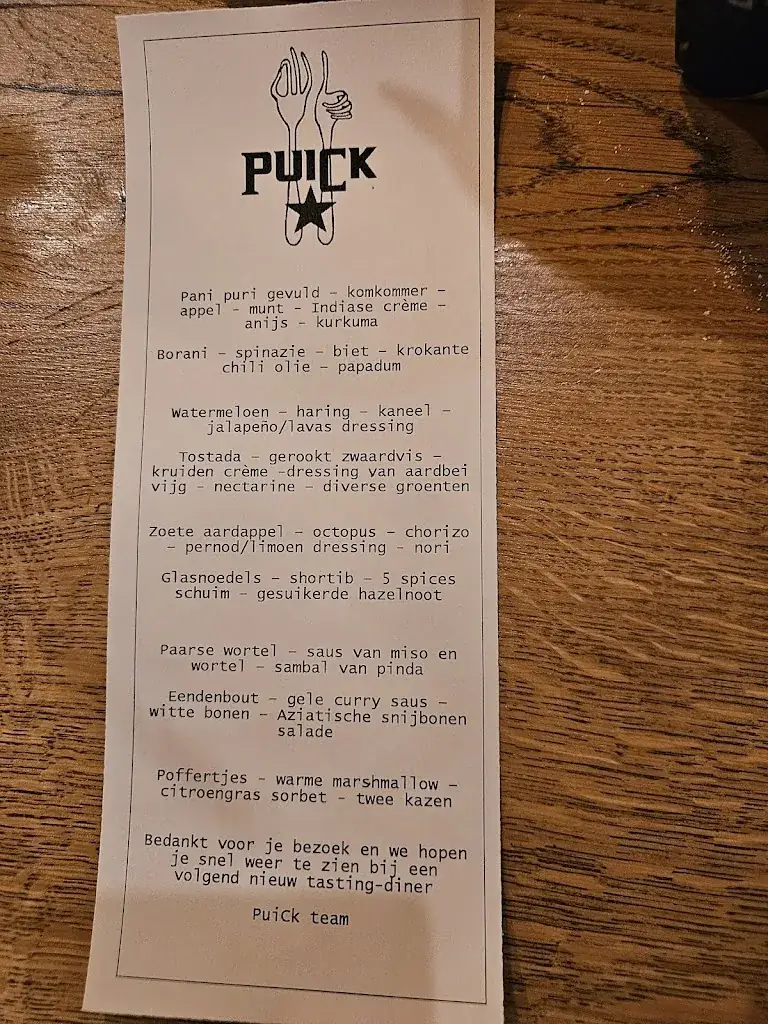 PUICK
Pani puri gevuld – komkommer –
appel - munt - Indiase crème –
anijs - kurkuma
Borani – spinazie – biet – krokante
chili olie – papadum
Watermeloen – haring – kaneel –
jalapeño/lavas dressing
Tostada – gerookt zwaardvis –
kruiden crème -dressing van aardbei
vijg - nectarine – diverse groenten
Zoete aardappel – octopus – chorizo
– pernod/limoen dressing - nori
Glasnoedels – shortib – 5 spices
schuim – gesuikerde hazelnoot
Paarse wortel – saus van miso en
wortel – sambal van pinda
Eendenbout – gele curry saus –
witte bonen – Aziatische snijbonen
salade
Poffertjes – warme marshmallow –
citroengras sorbet - twee kazen
Bedankt voor je bezoek en we hopen
je snel weer te zien bij een
volgend nieuw tasting-diner
PuiCk team